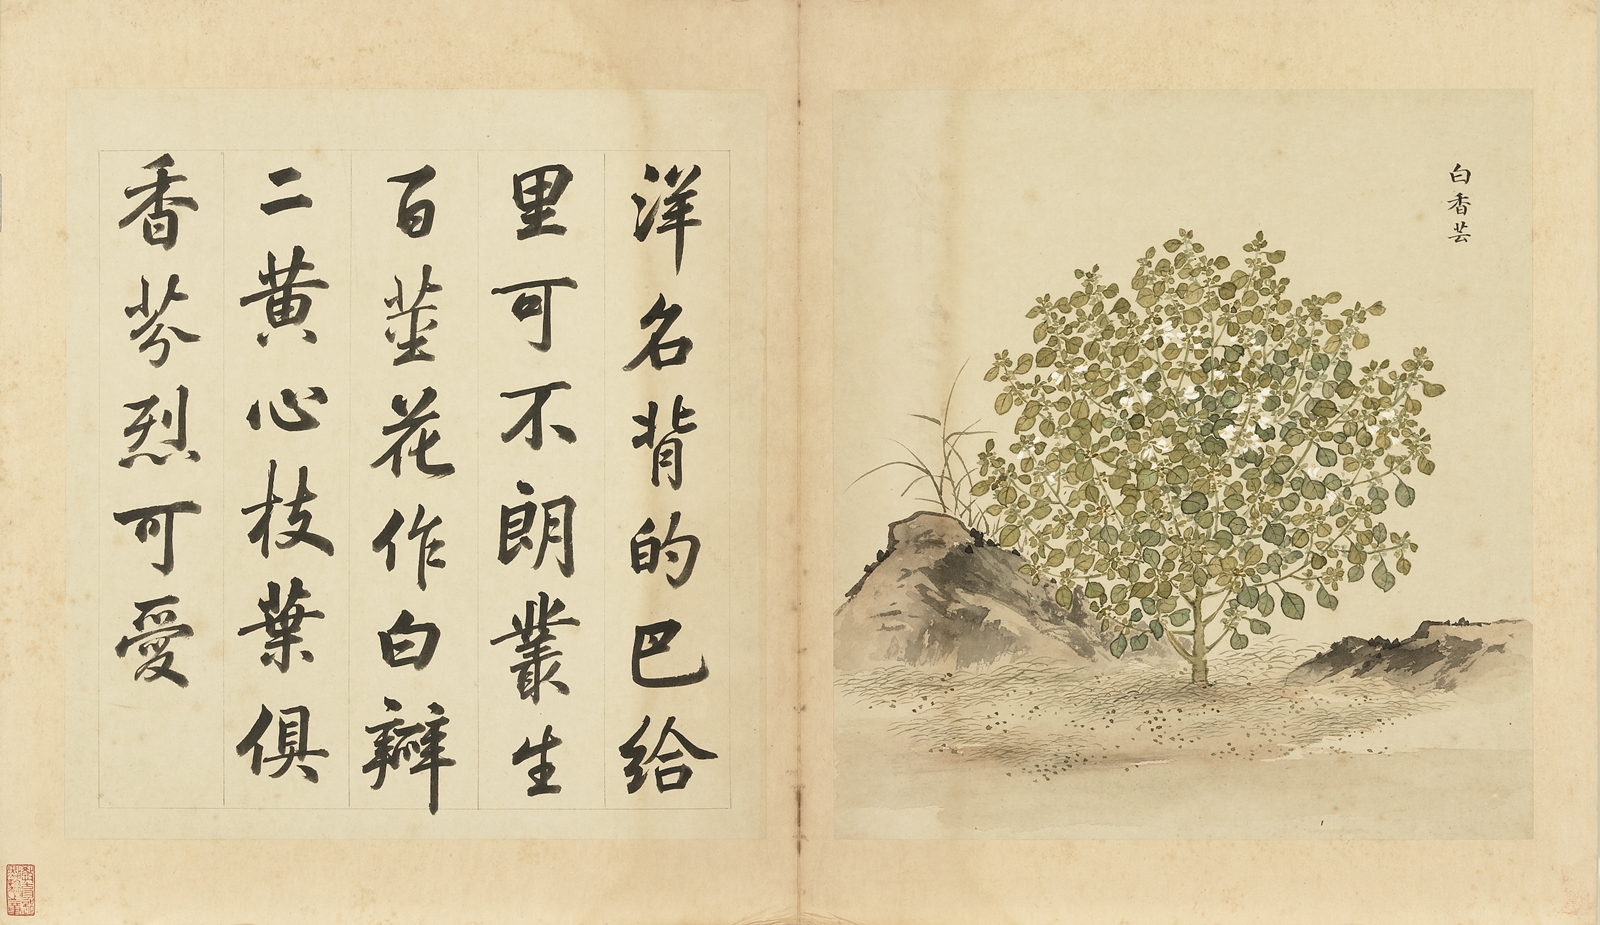 白香芸
洋名背的巴給
里可不朗叢生
百莖花作白瓣
二黄心枝葉俱
香芬烈可愛